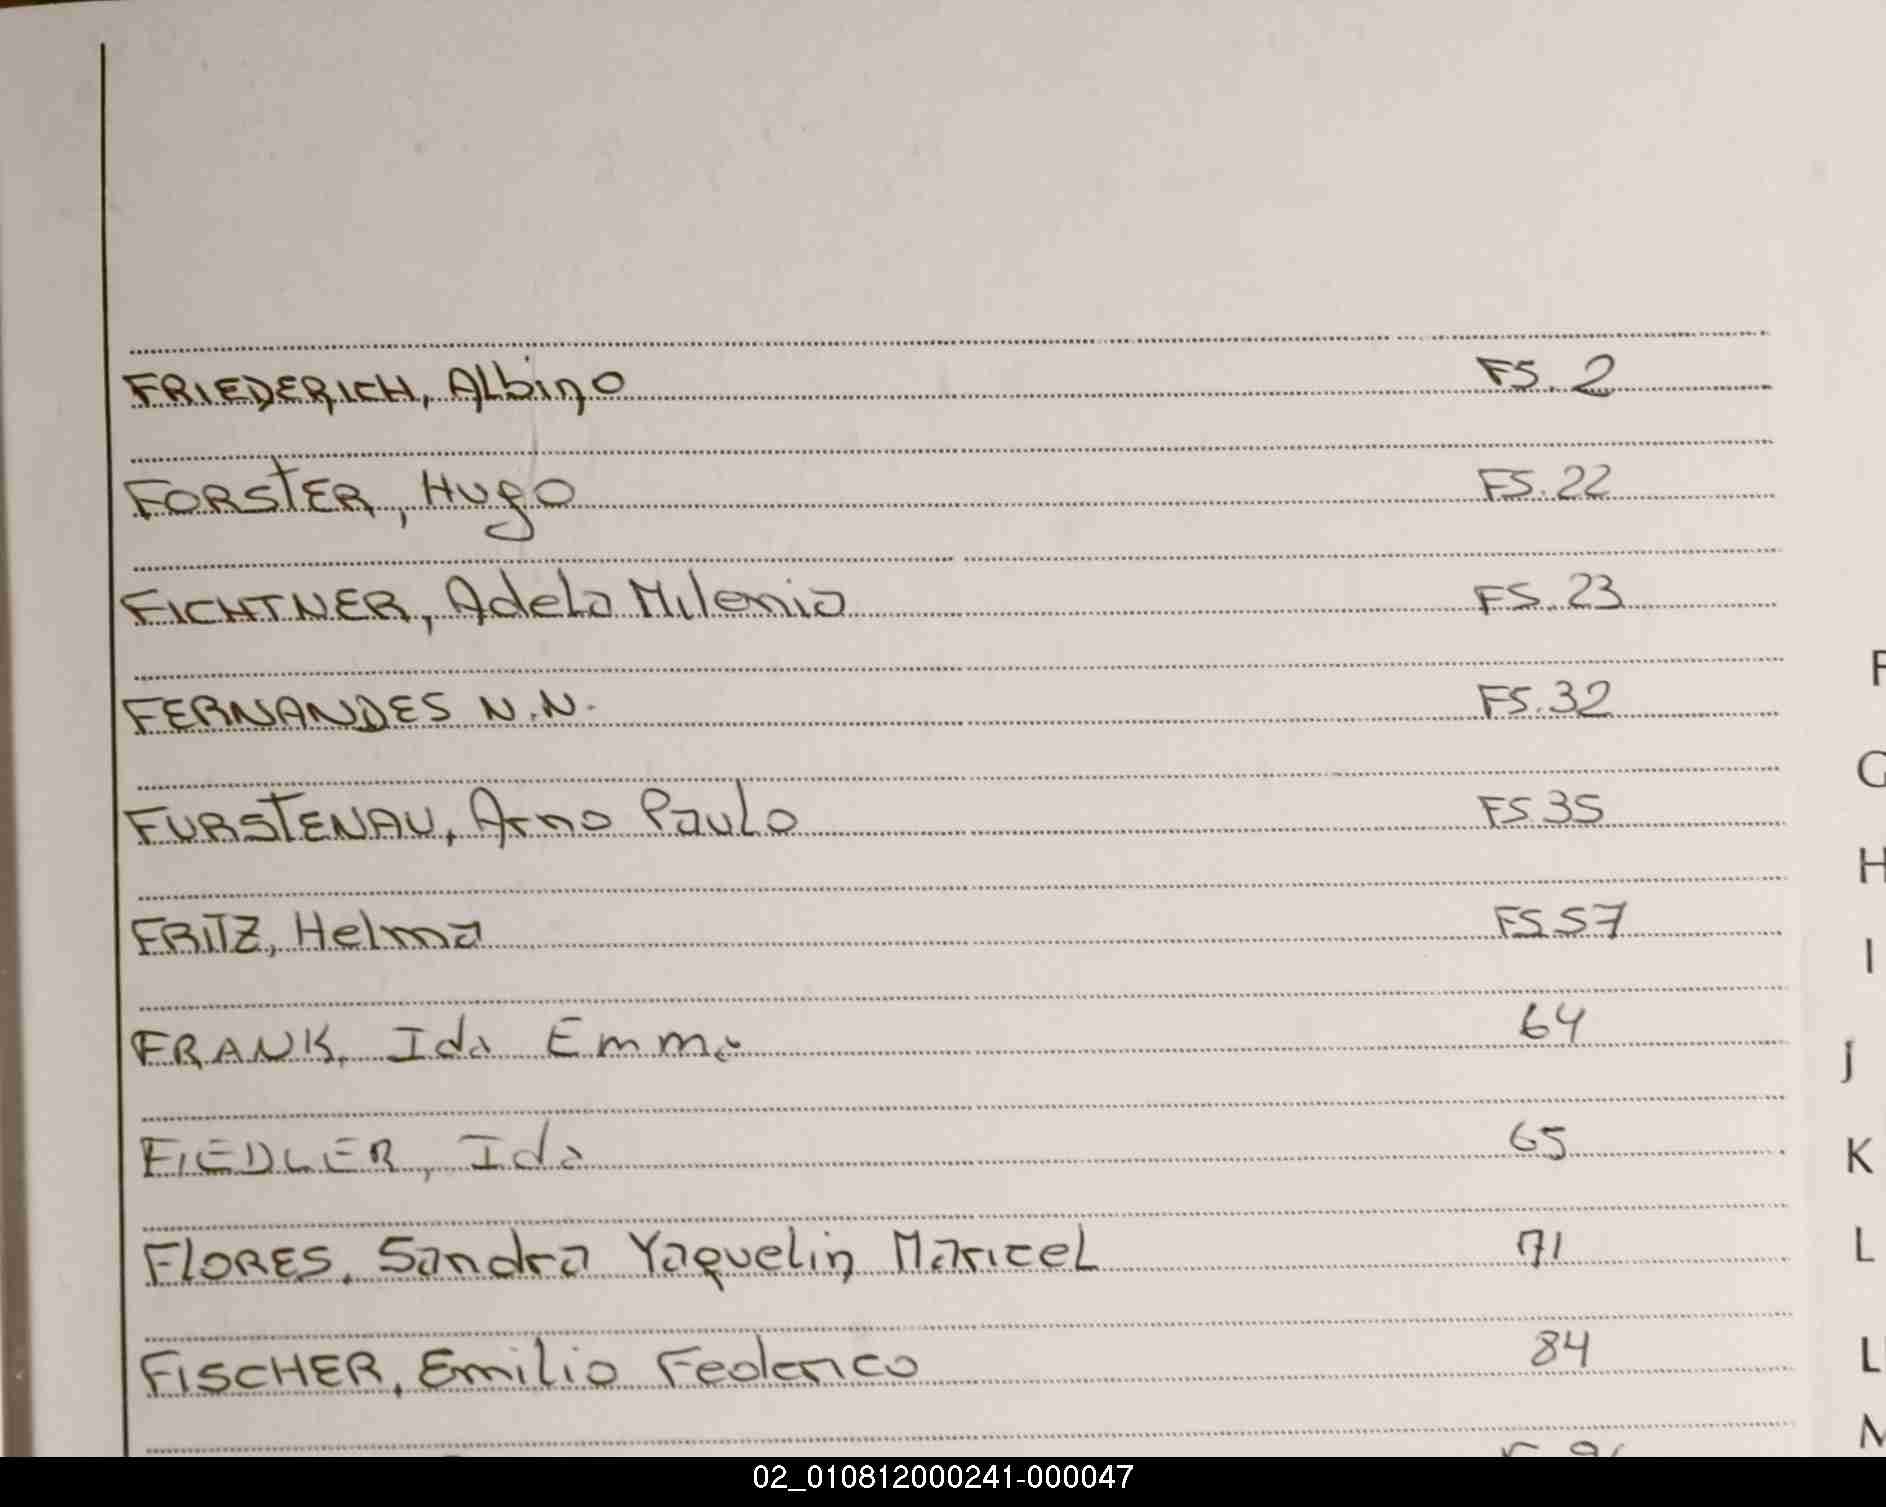 FRIEDERICH, Albino FS. 2
FORSTER, Hugo FS. 22
FICHTNER, Adela Milenia FS. 23
FERNANDES N.N. FS. 32
FURSTENAU, Arno Paulo FS 35
FRITZ, Helma FS 57
FRANK, Ida Emma 64
FIEDLER, Ida 65
FLORES, Sandra Yaquelin Maricel 71
FISCHER, Emilio Federico 84
F
G
H
I
J
K
L
LL
M
02_010812000241-000047